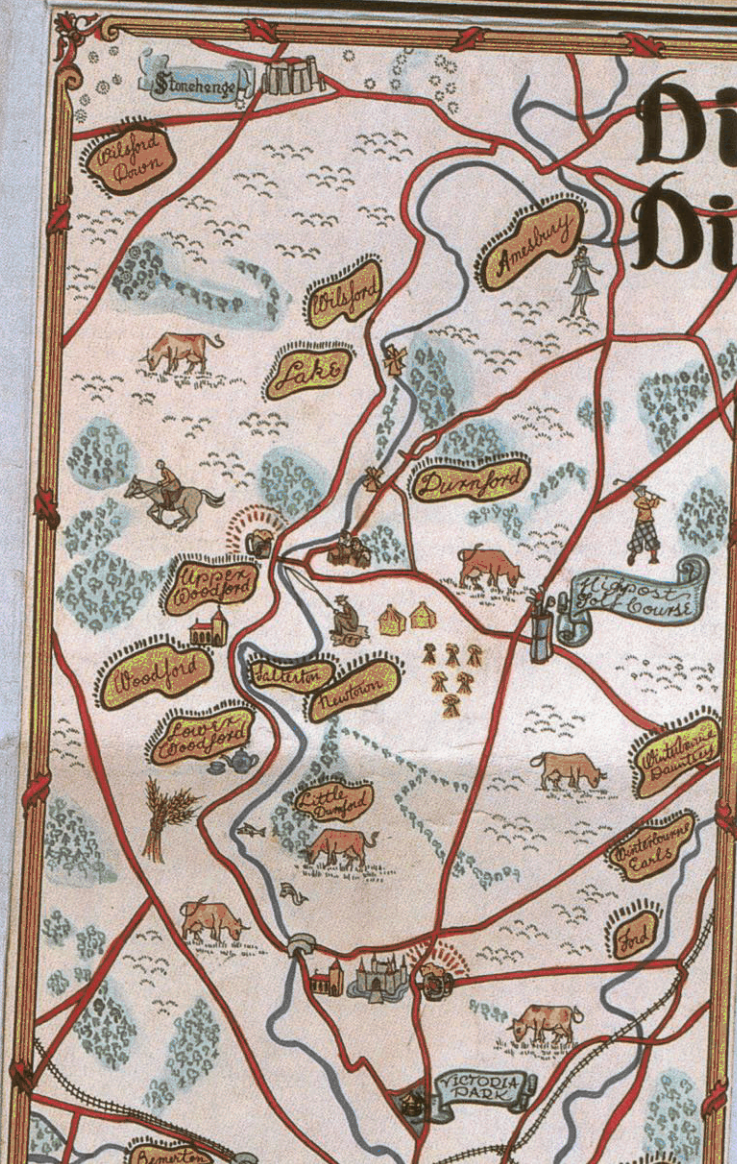 Stonehenge
Di
Wilsford
Down
Di
Amesbury
Wilsford
Lake
Durnford
Upper
Woodford
Highpost
Golf Course
Woodford
Salterton
Newtown
Lower
Woodford
Winterbourne
Dauntsey
Little
Durnford
Winterbourne
Earls
Ford
VICTORIA
PARK
Bemerton